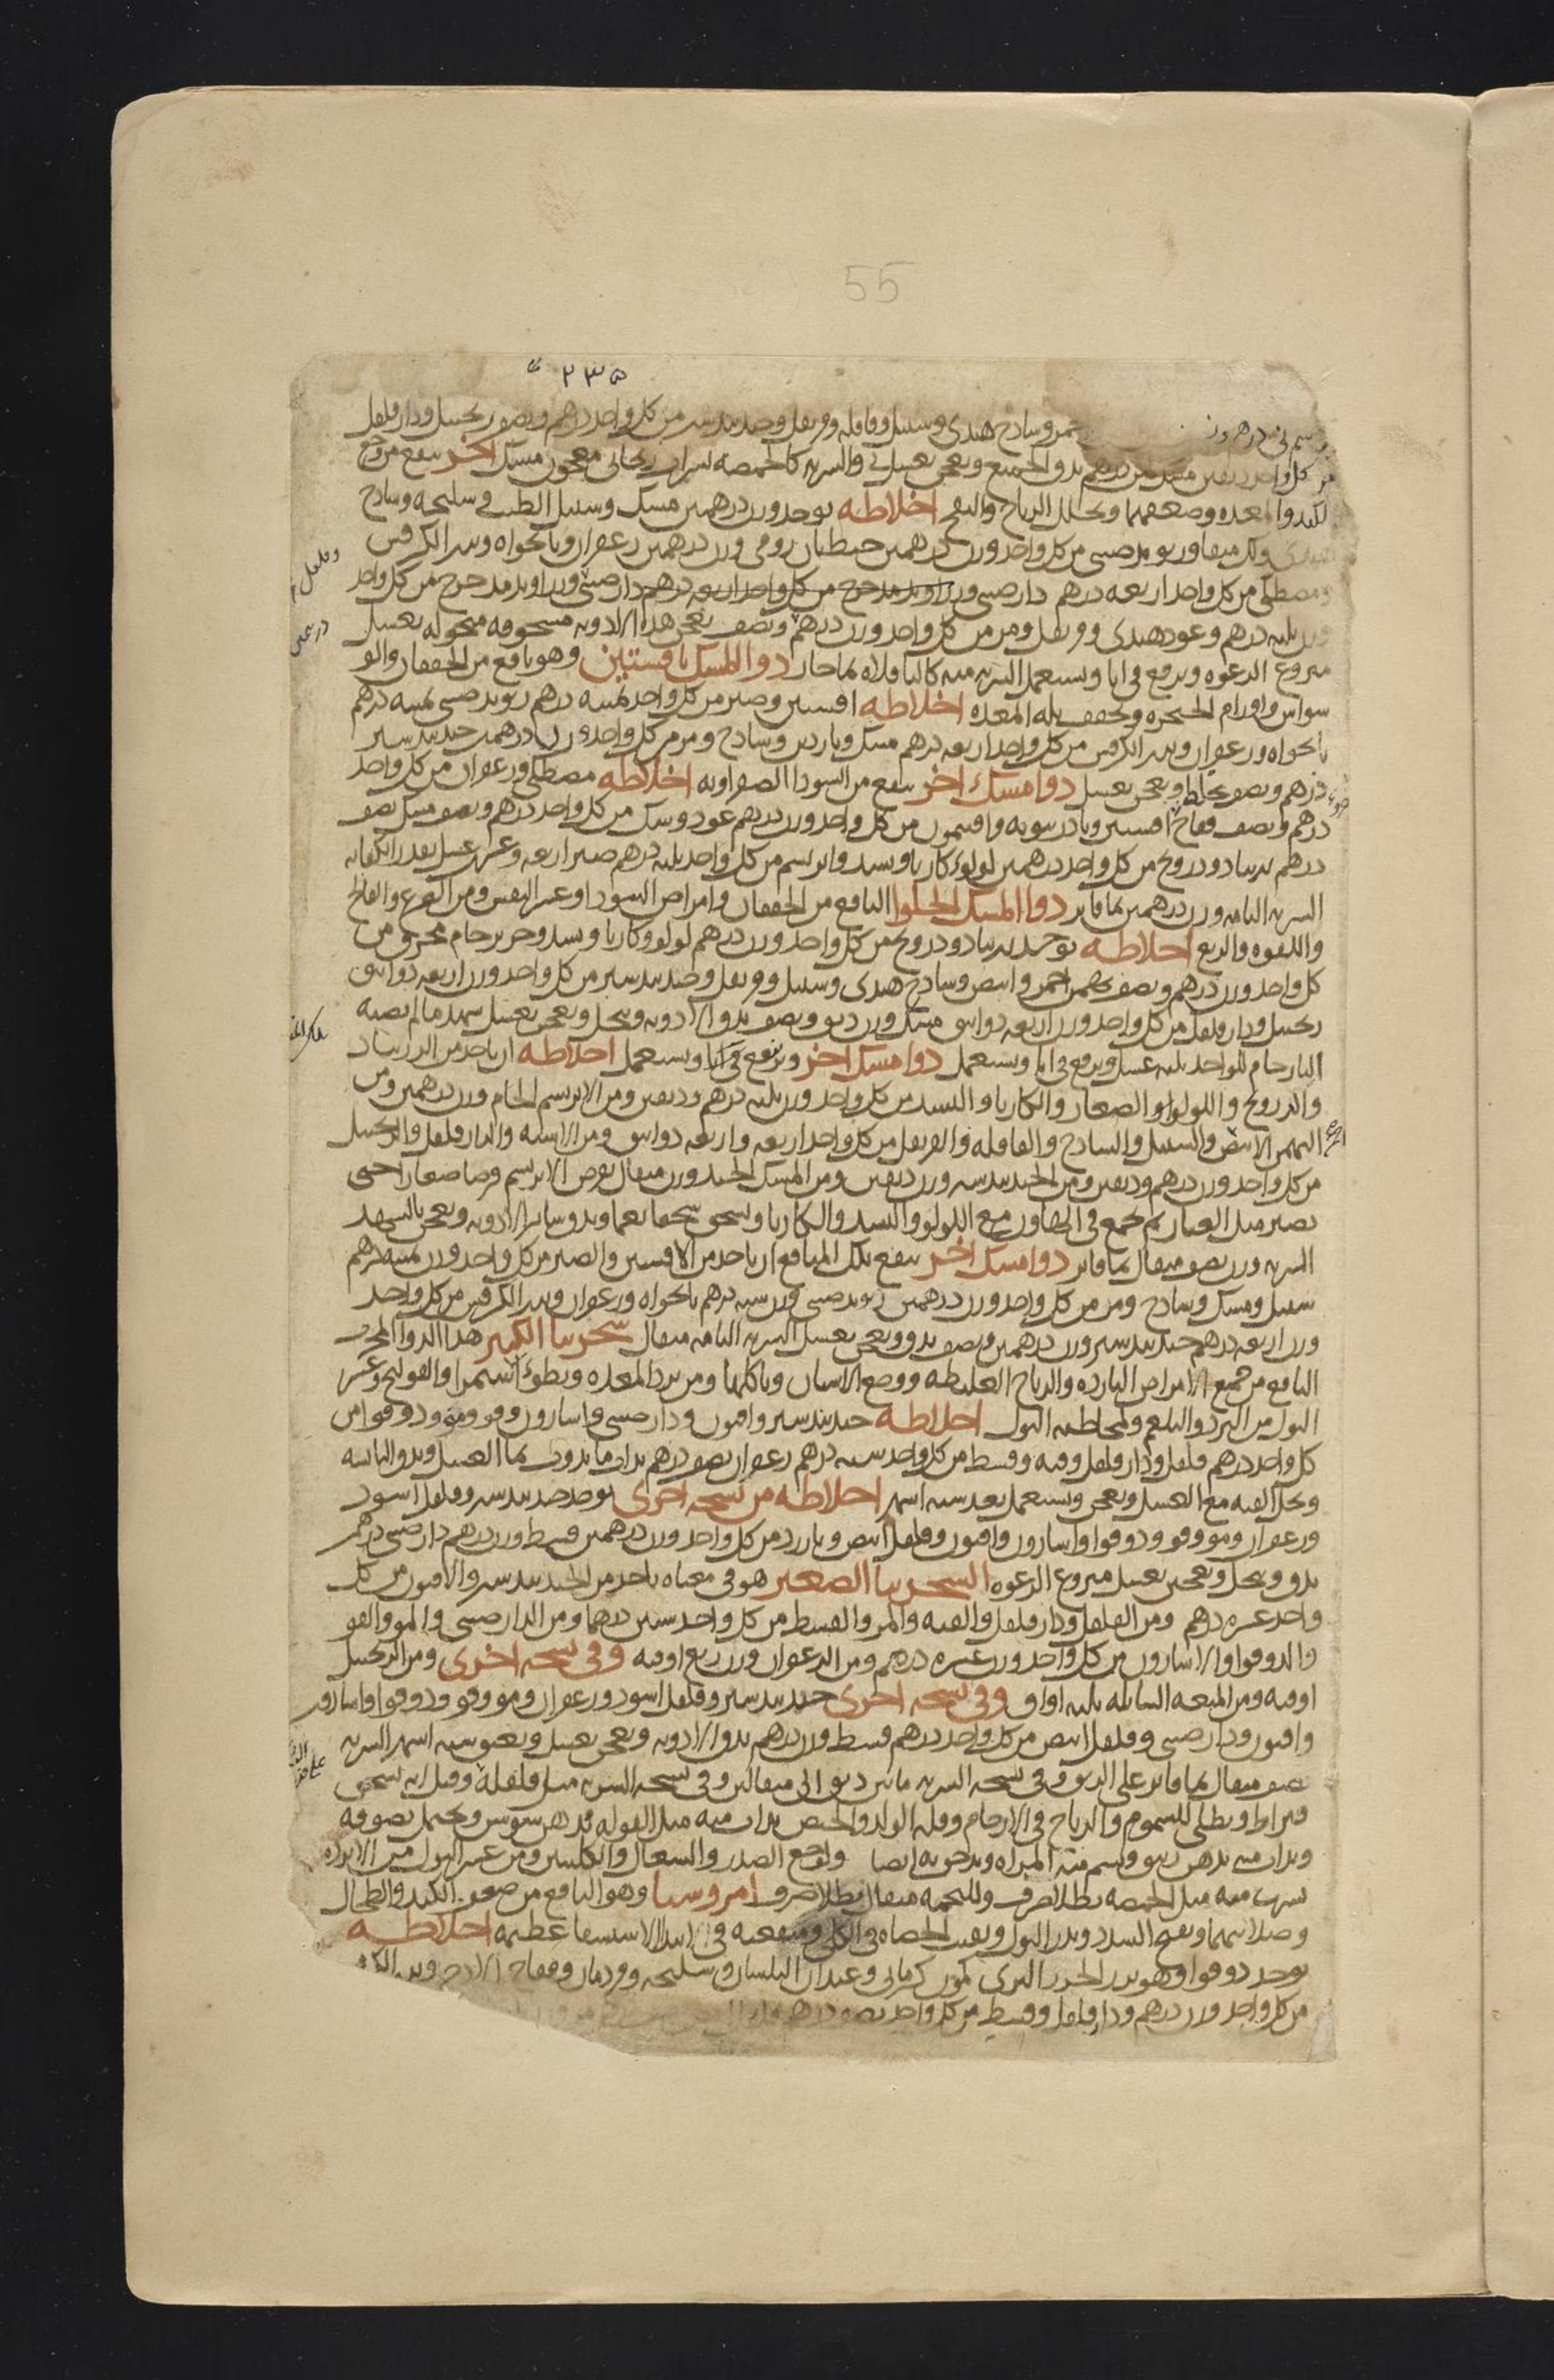 55
٢٣٥
وسادج هندى وسنبل وقاقله وقرنفل وجندبيدستر من كل واحد درهم ونصف زنجبيل ودارفلفل
من كل واحد يدق الجميع ويعجن بعسل والشربه كالحمصه بشراب ريحانى معجون مسك اخر ينفع من وجع
الكبد والمعده وضعفهما ويحلل الرياح والنفخ اخلاطه يوخذ وزن درهمين مسك وسنبل الطيب وسليخه وسادج
وريوند صينى من كل واحد وزن درهمين جنطيان رومى وزن درهمين زعفران ونانخواه وبزر الكرفس
ومصطكى من كل واحد اربعه درهم دارصينى وزراوند مدحرج من كل واحد اربعه درهم دارصينى وزراوند مدحرج من كل واحد
وزن ثلثه درهم وعود هندى وقرنفل ومر من كل واحد وزن درهم ونصف يعجن هذا الادويه مسحوقه منخوله بعسل
منزوع الرغوه ويرفع فى انا ويستعمل الشربه منه كالباقلاه بما حار دوا المسك بافسنتين وهو نافع من الخفقان والو
سواس واورام الحنجره ويجفف بله المعده اخلاطه افسنتين وصبر من كل واحد ثمنيه درهم ريوند صينى ثمنيه درهم
نانخواه وزعفران وبزر الكرفس من كل واحد اربعه درهم مسك وناردين وسادج ومر من كل واحد وزن درهمين جندبيدستر
درهم ونصف يخلط ويعجن بعسل دوا مسك اخر ينفع من السودا الصفراويه اخلاطه مصطكى وزعفران من كل واحد
درهم ونصف فقاح افسنتين وبادرنبويه وافتيمون من كل واحد وزن درهم عود وسك من كل واحد درهم ونصف مسك نصف
درهم زرنباد ودرونج من كل واحد درهمين لولو وكاربا وبسد وابريسم من كل واحد ثلثه درهم صبر اربعه وعشر عسل بقدر الكفايه
الشربه التامه وزن درهمين بما فاتر دوا المسك الحلوا النافع من الخفقان وامراض السودا وعسر النفس ومن الصرع والفالج
واللقوه والربع اخلاطه يوخذ زرنباد ودرونج من كل واحد وزن درهم لولو وكاربا وبسد وحرير خام محرق من
كل واحد وزن درهم ونصف بهمن احمر وابيض وسادج هندى وسنبل وقرنفل وجندبيدستر من كل واحد وزن اربعه دوانيق
زنجبيل ودارفلفل من كل واحد وزن اربعه دوانيق مسك وزن دنق ونصف يدق الادويه وينخل ويعجن بعسل شهد ما لم تصبه
النار خام للواحد ثلثه عسل ويرفع فى انا ويستعمل دوا مسك اخر ويرفع فى انا ويستعمل اخلاطه ان ياخذ من الزرنباد
والدرونج واللولو الصغار والكاربا والبسد من كل واحد وزن ثلثه درهم ودنقين ومن الابريسم الخام وزن درهمين ومن
البهمن الابيض والسنبل والسادج والقاقله والقرنفل من كل واحد اربعه واربعه دوانيق ومن الاشنه والدارفلفل والزنجبيل
من كل واحد وزن درهم ودنقين ومن الجندبيدستر وزن دنقين ومن المسك الجيد وزن مثقال يقرض الابريسم قرضا صغارا حتى
يصير مثل الغبار ثم يجمع فى الهاون مع اللولو والبسد والكاربا ويسحق سحقا نعما ويدق ساير الادويه ويعجن بالشهد
الشربه وزن نصف مثقال بما فاتر دوا مسك اخر ينفع تلك المنافع ان ياخذ من الافسنتين والصبر من كل واحد وزن ثمنيه درهم
سنبل ومسك وسادج ومر من كل واحد وزن درهمين ريوند صينى وزن سته درهم نانخواه وزعفران وبزر الكرفس من كل واحد
وزن اربعه درهم جندبيدستر وزن درهمين ونصف يدق ويعجن بعسل الشربه التامه مثقال سجزنيا الكبير هذا الدوا المجرب
النافع من جميع الامراض البارده والرياح الغليظه ووجع الاسنان وتاكلها ومن برد المعده وبطوء استمرا والقولنج وعسر
البول من البرد والبلغم والمخاطيه البول اخلاطه جندبيدستر وافيون ودارصينى واسارون وفو ومو ودوقوا من
كل واحد درهم فلفل ودارفلفل وقنه وقسط من كل واحد سته درهم زعفران نصف درهم يداف ما يذوب بما العسل ويدق اليابسه
ويحل القنه مع العسل ويعجن ويستعمل بعد سته اشهر اخلاطه من نسخه اخرى يوخذ جندبيدستر وفلفل اسود
وزعفران ومو وفو ودوقوا واسارون وافيون وفلفل ابيض ونارد من كل واحد وزن درهمين قسط وزن درهم دارصينى درهم
يدق وينخل ويعجن بعسل منزوع الرغوه السجزنيا الصغير هو فى معناه ياخذ من الجندبيدستر والافيون من كل
واحد عشره درهم ومن الفلفل ودارفلفل والقنه والمر والقسط من كل واحد ستين درهما ومن الدارصينى والمو والفو
والدوقوا والاسارون من كل واحد وزن عشره درهم ومن الزعفران وزن ربع اوقيه وفى نسخه اخرى ومن الزنجبيل
اوقيه ومن الميعه السايله ثلثه اواق وفى نسخه اخرى جندبيدستر وفلفل اسود وزعفران ومو وفو ودوقوا واسارون
وافيون ودارصينى وفلفل ابيض من كل واحد درهم قسط وزن درهم يدق الادويه ويعجن بعسل ويعتق سته اشهر الشربه
نصف مثقال بما فاتر على الريق وفى نسخه الشربه ما بين دنق الى مثقالين وفى نسخه الشربه مثل فلفله وقيل انه يسحق
قيراط ويطلى للسموم والرياح فى الارحام وقله الولد والحيض يداف منه مثل الفوله بدهن سوسن ويحتمل بصوفه
ويداف منه بدهن زنبق وتسم منه المراه وتدخن به ايضا ولوجع الصدر والسعال والكليتين ومن عسر البول من الابرده
يشرب منه مثل الحمصه بطلا صرف وللتخمه مثقال بطلا صرف امروسيا وهو النافع من ضعف الكبد والطحال
وصلابتهما ويفتح السدد ويدر البول ويفتت الحصاه فى الكلى ومنفعته فى ابتدا الاستسقا عظيمه اخلاطه
يوخذ دوقوا وهو بزر الجزر البرى كمون كرمانى وعيدان البلسان وسليخه وقردمان وفقاح الاذخر وبزر الكرفس
من كل واحد وزن درهم ودارفلفل وقسط من كل واحد نصف درهم